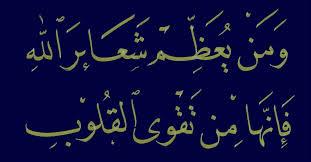 وَمَن يُعَظِّمْ شَعَائِرَ ٱللَّهِ
فَإِنَّهَا مِن تَقْوَى ٱلْقُلُوبِ